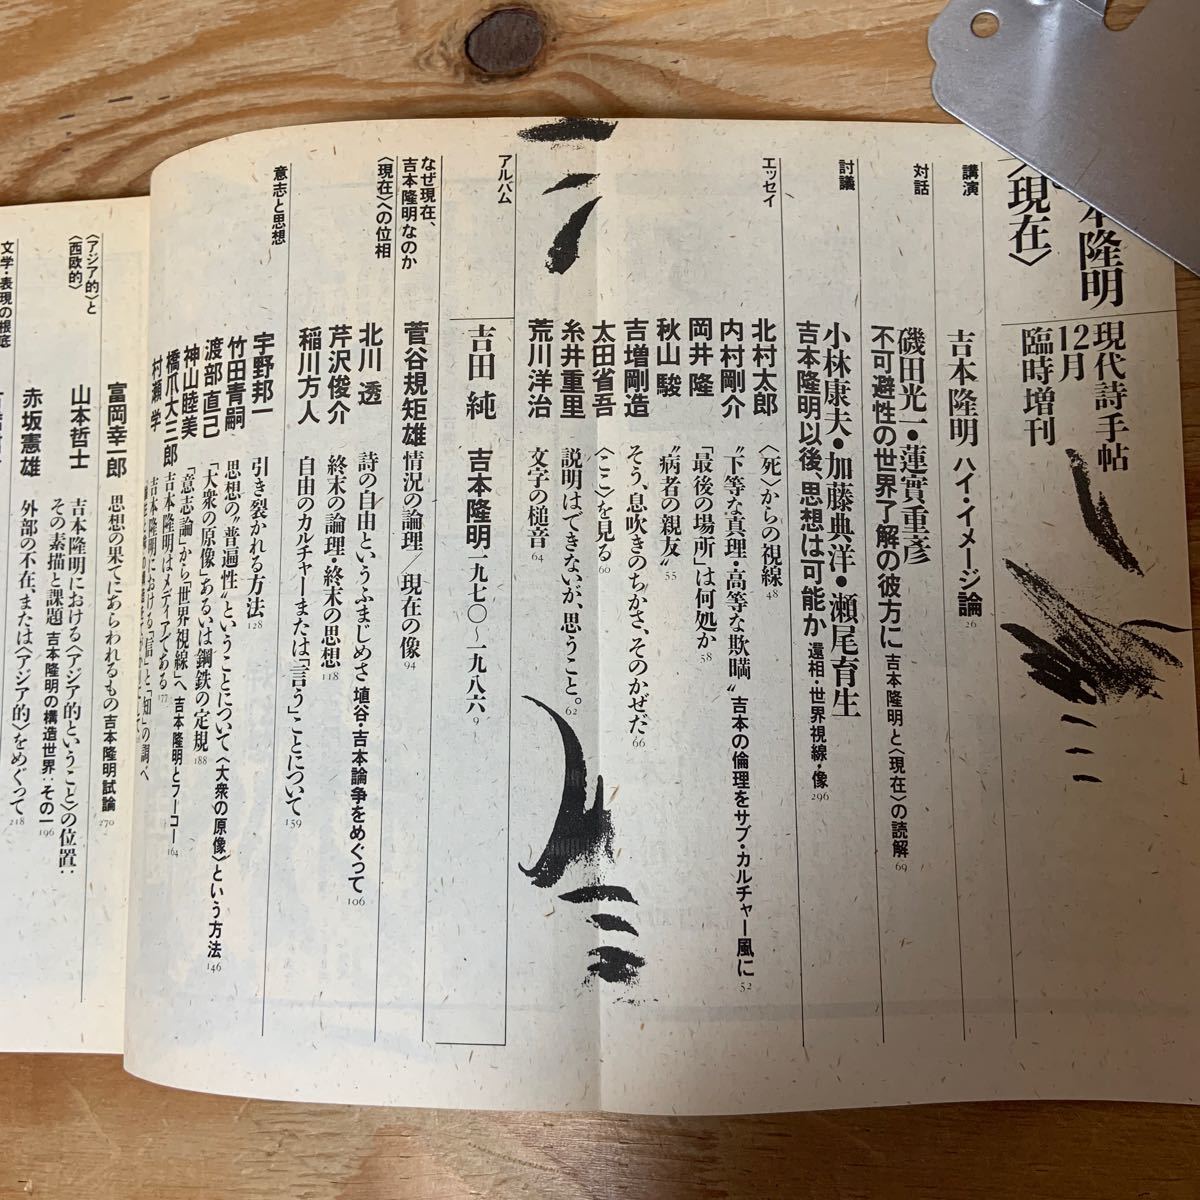 本隆明
〈現在〉
現代詩手帖
12月
臨時増刊
講演
吉本隆明 ハイ・イメージ論 26
対話
磯田光一・蓮實重彦
不可避性の世界了解の彼方に 吉本隆明と〈現在〉の読解 69
討議
小林康夫・加藤典洋・瀬尾育生
吉本隆明以後、思想は可能か 還相・世界視線・像 296
エッセイ
北村太郎 〈死〉からの視線 48
内村剛介 〝下等な真理・高等な欺瞞〟 吉本の倫理をサブ・カルチャー風に 52
岡井隆 「最後の場所」は何処か 58
秋山駿 〝病者の親友〟 55
吉増剛造 そう、息吹きのちかさ、そのかぜだ 66
太田省吾 〈ここ〉を見る 60
糸井重里 説明はできないが、思うこと。 62
荒川洋治 文字の槌音 64
アルバム
吉田純 吉本隆明一九七〇〜一九八六 9
なぜ現在、
吉本隆明なのか
菅谷規矩雄 情況の論理/現在の像 94
〈現在〉への位相
北川透 詩の自由というふまじめさ 埴谷・吉本論争をめぐって 106
芹沢俊介 終末の論理・終末の思想 118
稲川方人 自由のカルチャーまたは「言う」ことについて 159
意志と思想
宇野邦一 引き裂かれる方法 128
竹田青嗣 思想の〝普遍性〟ということについて 〈大衆の原像〉という方法 146
渡部直己 「大衆の原像」あるいは鋼鉄の定規 188
神山睦美 「意志論」から「世界視線」へ 吉本隆明とフーコー 164
橋爪大三郎 吉本隆明はメディアである 177
村瀬学 吉本隆明における「信」と「知」の調べ
〈アジア的〉と
〈西欧的〉
富岡幸一郎 思想の果てにあらわれるもの 吉本隆明試論 270
山本哲士 吉本隆明における〈アジア的ということ〉の位置:
その素描と課題 吉本隆明の構造世界:その一 196
赤坂憲雄 外部の不在、または〈アジア的〉をめぐって 218
文学・表現の根底